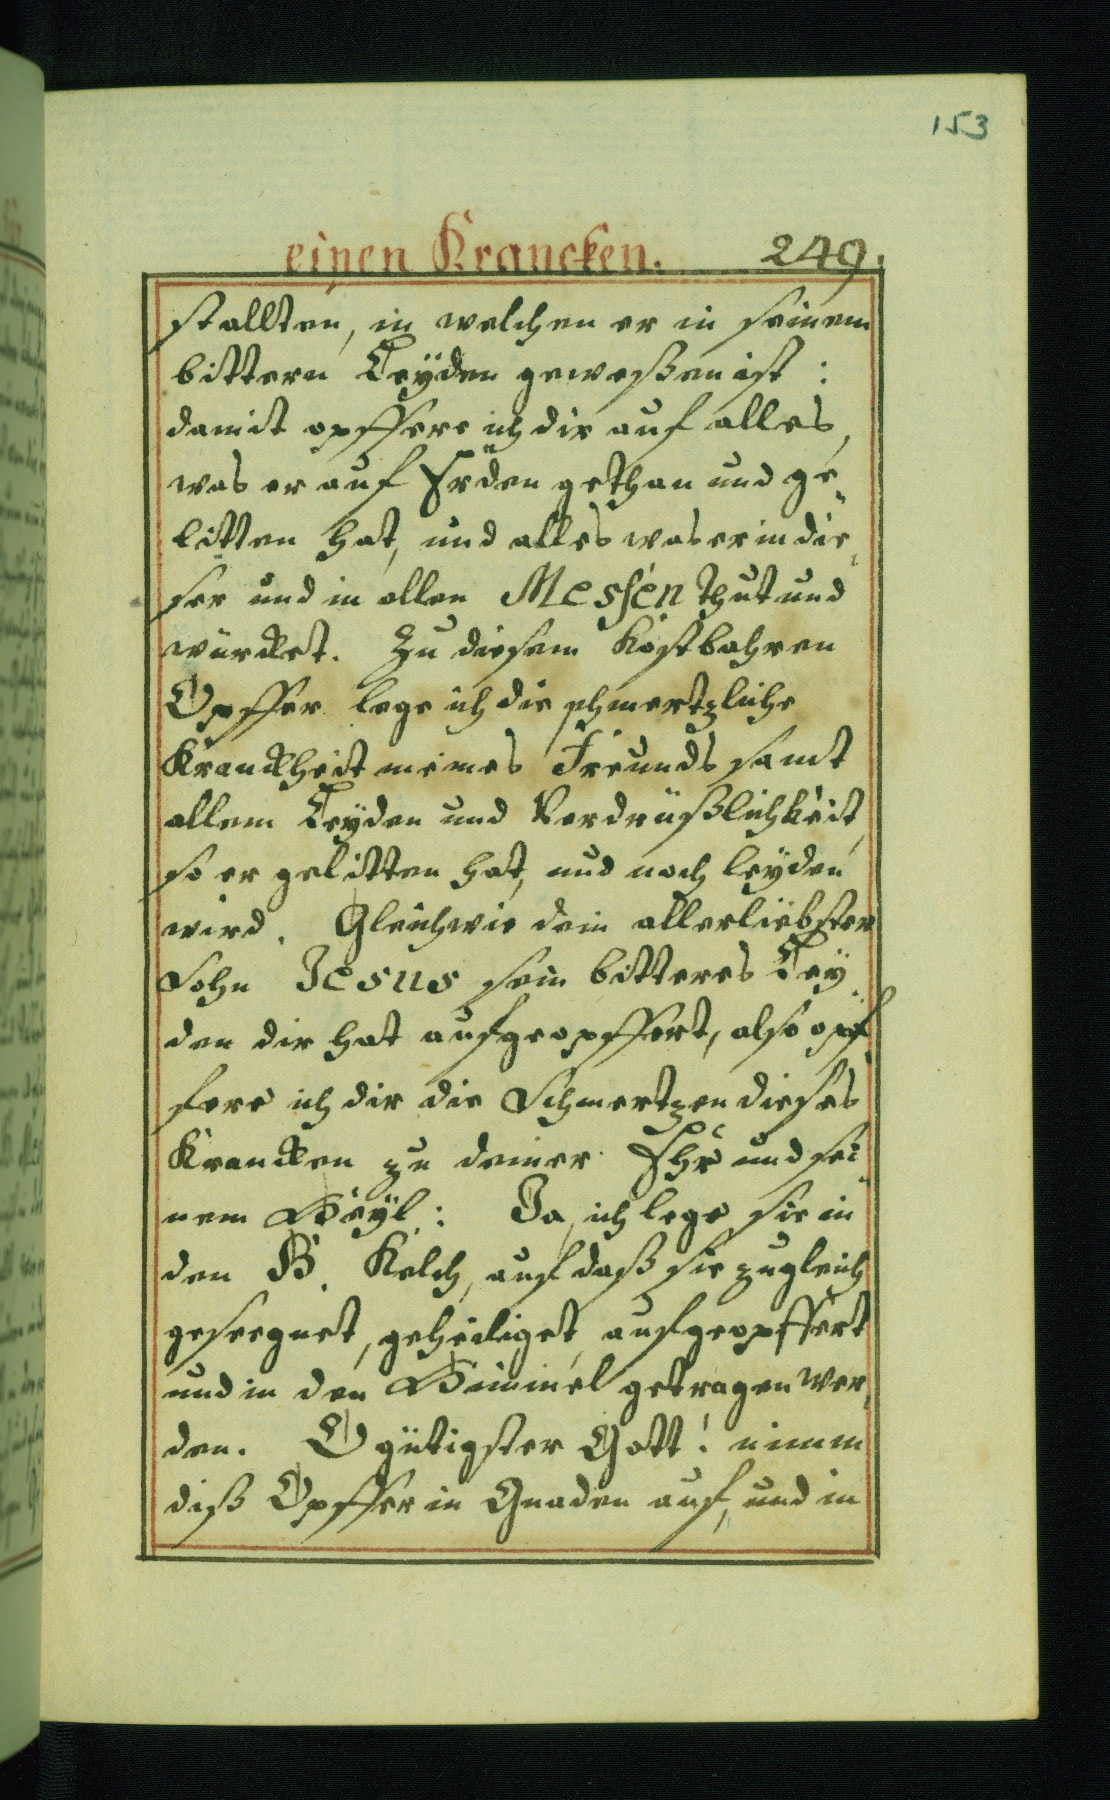 153
einen Krancken. 249.
stallten, in welchen er in seinem
bittern Leÿden geweßen ist :
damit opffere ich dir auf alles,
was er auf Erden gethan und ge„
litten hat, und alles was er in die„
ser und in allen Messen thut und
würcket. Zu diesem kostbahren
Opffer lege ich die schmertzliche
Kranckheit meines Freunds samt
allem Leÿden und Verdrüßlichkeit,
so er gelitten hat, und noch leÿden
wird. Gleichwie dein allerliebster
Sohn Jesus sein bitteres Leÿ„
den dir hat aufgeopffert, also opf„
fere ich dir die Schmertzen dieses
Krancken zu deiner Ehr und sei„
nem Heÿl: Ja, ich lege sie in
den H. Kelch, auf daß sie zugleich
geseegnet, geheiliget, aufgeopffert
und in den Himmel getragen wer„
den. O gütigster Gott! nimm
diß Opffer in Gnaden auf, und in